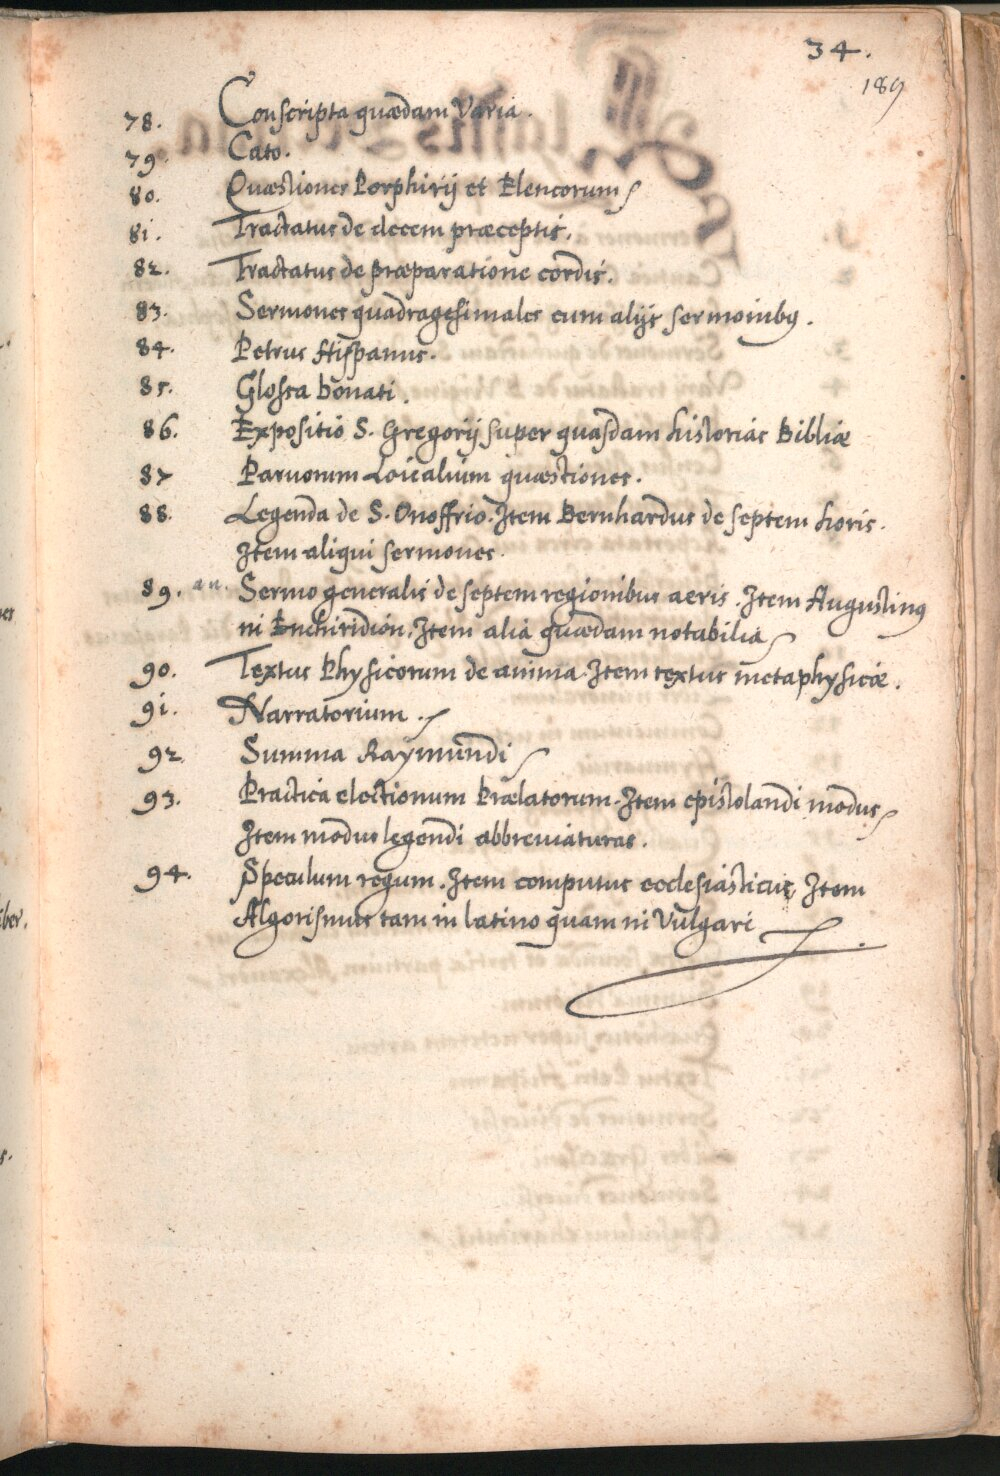 34.
189
78. Conscripta quædam Varia.
79. Cato.
80. Quæstiones Porphirij et Elencorum
81. Tractatus de decem præceptis.
82. Tractatus de præparatione cordis.
83. Sermones quadragesimales cum alijs sermonibus.
84. Petrus Hispanus.
85. Glossa Donati.
86. Expositio S. Gregorij super quasdam historias Bibliæ
87 Paruorum Loicalium quæstiones.
88. Legenda de S. Onoffrio. Item Bernhardus de septem horis.
Item aliqui sermones.
89. Sermo generalis de septem regionibus aeris. Item Augustinus
in Enchiridion. Item alia quædam notabilia
90. Textus Physicorum de anima. Item textus metaphysicæ.
91. Narratorium.
92 Summa Raymundi
93. Practica electionum Prælatorum. Item epistolandi modus
Item modus legendi abbreuiaturas.
94. Speculum regum. Item computus ecclesiasticus, Item
Algorismus tam in latino quam in Vulgari